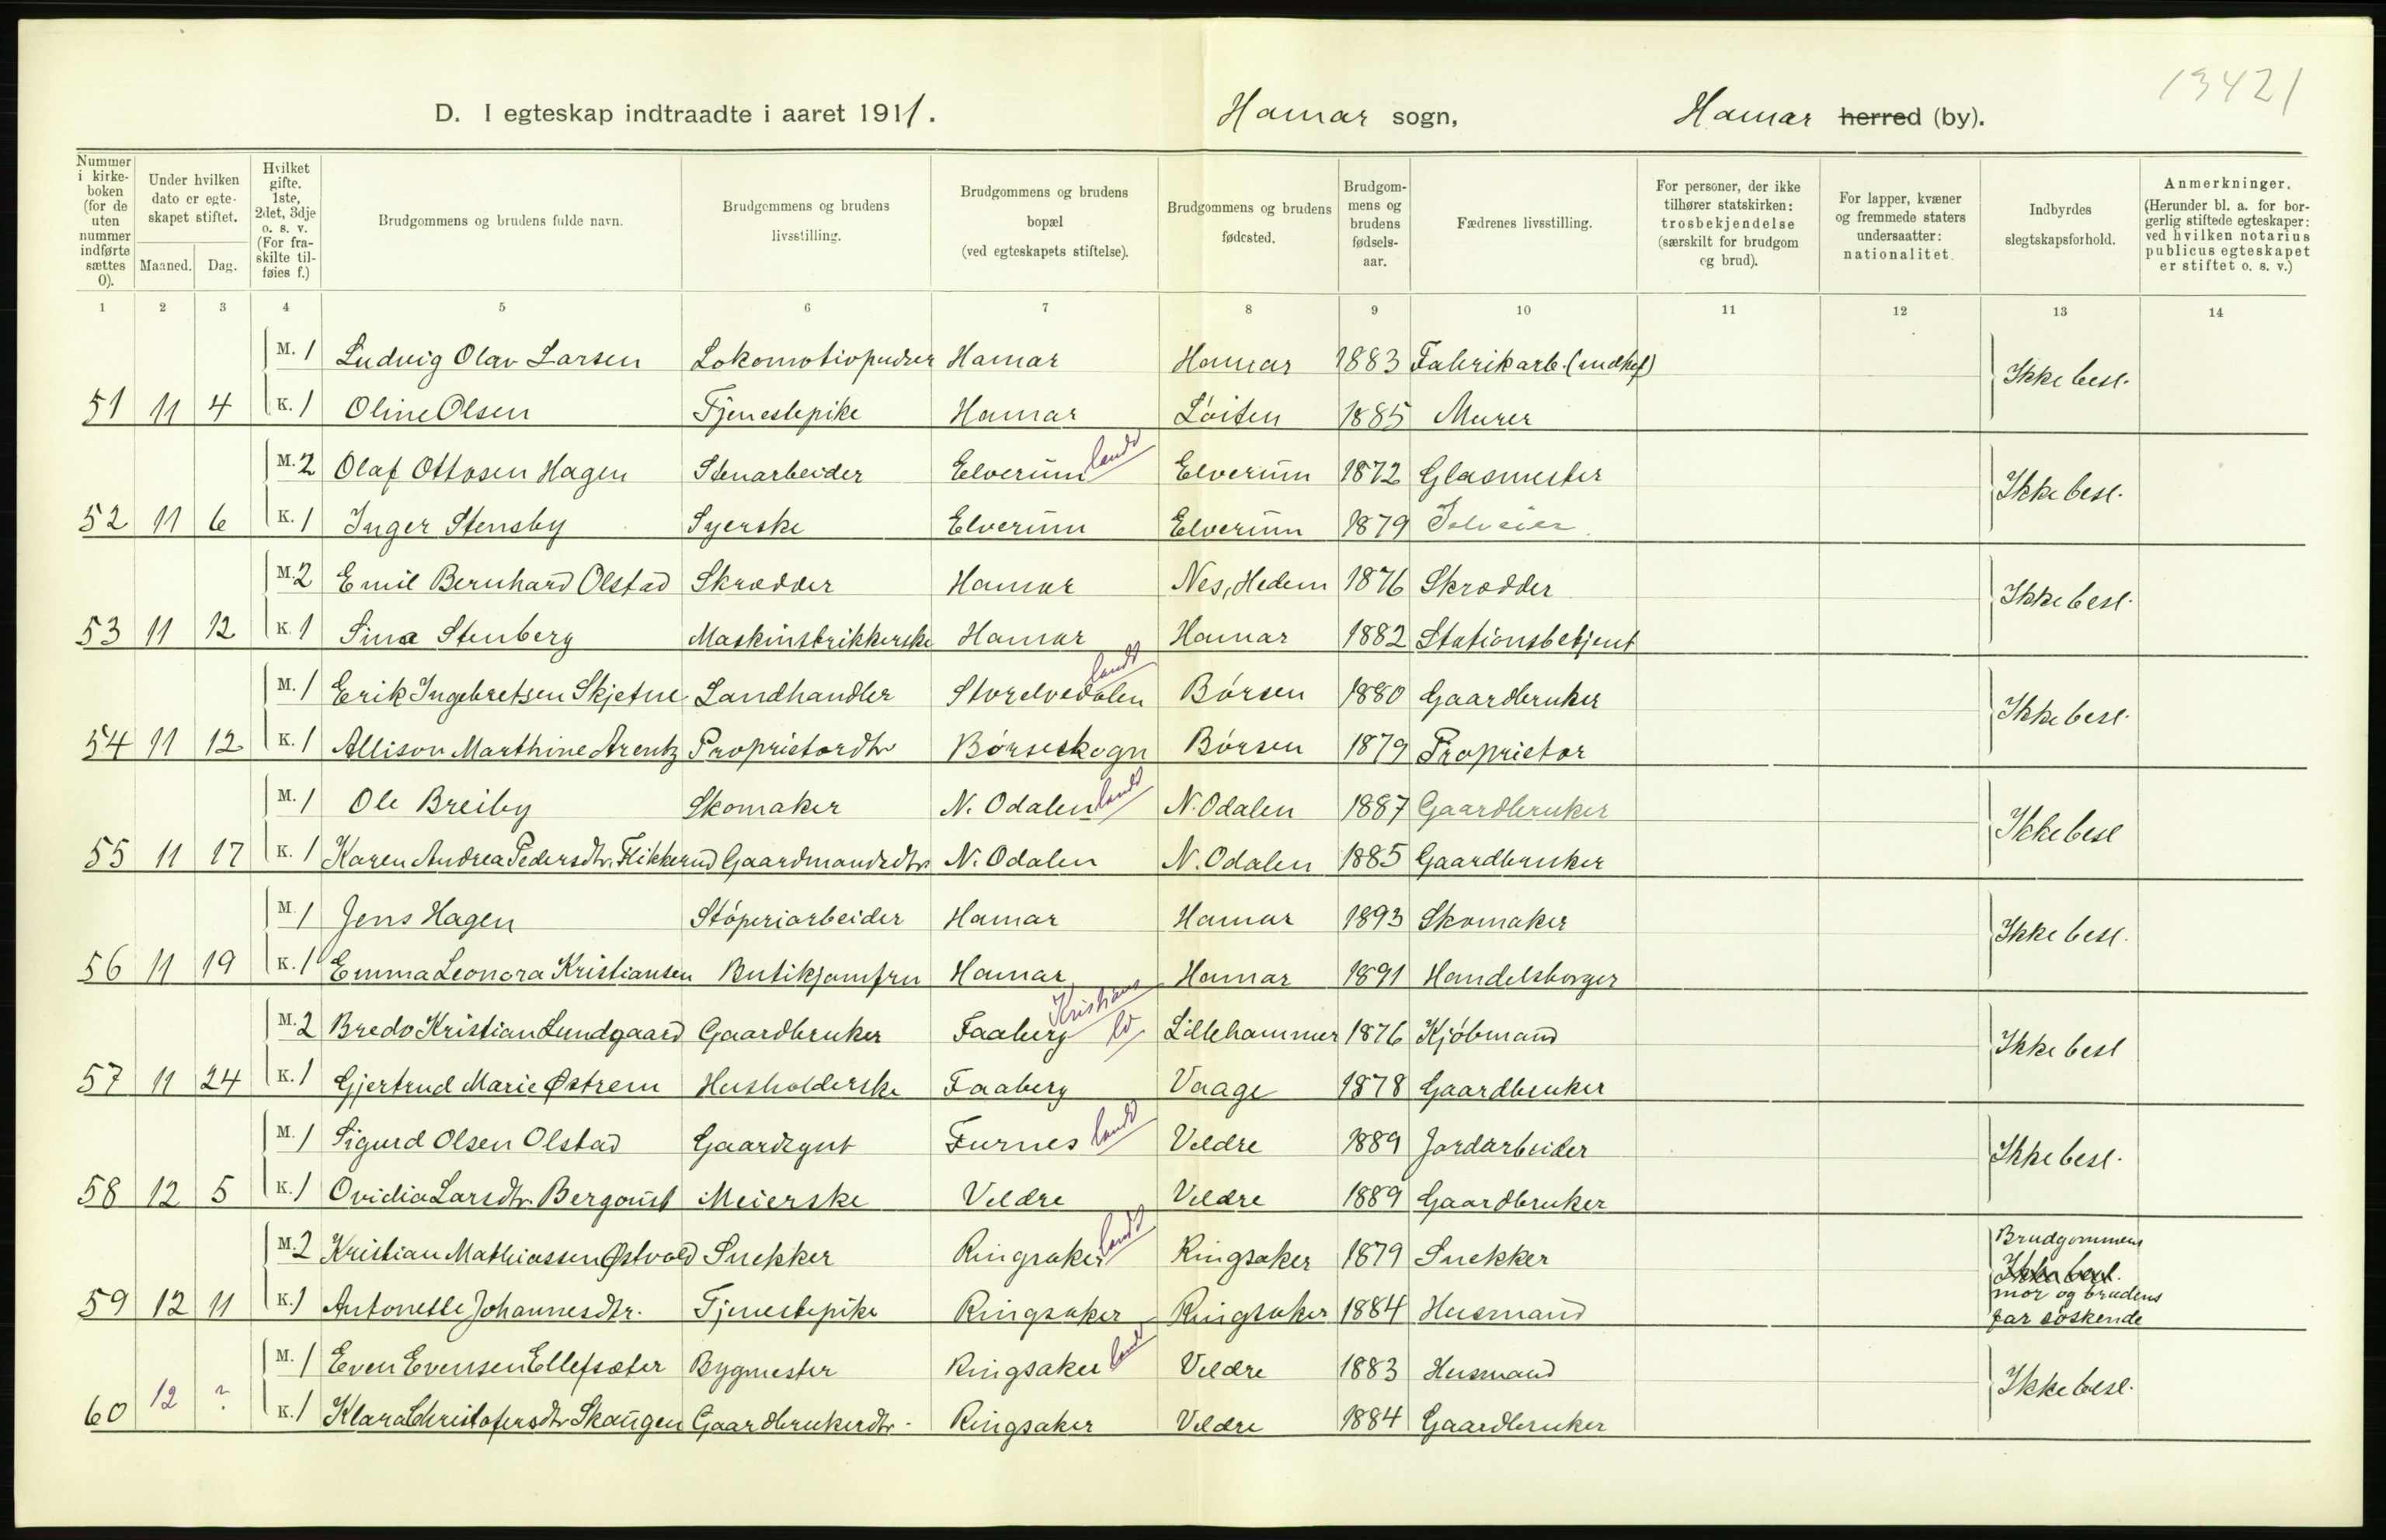 13421
D. I egteskap indtraadte i aaret 1911. Hamar sogn, Hamar herred (by).
Nummer i kirkeboken (for de uten nummer indførte sættes 0).
Under hvilken dato er egteskapet stiftet.
Maaned. Dag.
Hvilket gifte. 1ste, 2det, 3dje o. s. v. (For fraskilte tilføies f.)
Brudgommens og brudens fulde navn.
Brudgommens og brudens livsstilling.
Brudgommens og brudens bopæl (ved egteskapets stiftelse).
Brudgommens og brudens fødested.
Brudgommens og brudens fødselsaar.
Fædrenes livsstilling.
For personer, der ikke tilhører statskirken: trosbekjendelse (særskilt for brudgom og brud).
For lapper, kvæner og fremmede staters undersaatter: nationalitet.
Indbyrdes slegtskapsforhold.
Anmerkninger. (Herunder bl. a. for borgerlig stiftede egteskaper: ved hvilken notarius publicus egteskapet er stiftet o. s. v.)
1 2 3 4 5 6 7 8 9 10 11 12 13 14
M. 1 Ludvig Olav Larsen Lokomotivpudser Hamar Hamar 1883 Fabrikarb. Ikke besl.
51 11 4 K. 1 Oline Olsen Tjenestepike Hamar Løiten 1885 Murer
M. 2 Olaf Ottosen Hagen Stenarbeider Elverum land Elverum 1872 Glasmester Ikke besl.
52 11 6 K. 1 Inger Stensby Syerske Elverum Elverum 1879 Selveier
M. 2 Emil Bernhard Olstad Skrædder Hamar Nes, Hedem 1876 Skrædder Ikke besl.
53 11 12 K. 1 Sina Stenberg Maskinstrikkerske Hamar Hamar 1882 Stationsbetjent
M. 1 Erik Ingebretsen Skjetne Landhandler Storelvedalen land Børsen 1880 Gaardbruker Ikke besl.
54 11 12 K. 1 Allison Marthine Arentz Proprietærdtr Børseskogn Børsen 1879 Proprietær
M. 1 Ole Breiby Skomaker N. Odalen land N. Odalen 1887 Gaardbruker Ikke besl
55 11 17 K. 1 Karen Andrea Pedersdtr. Flikkerud Gaardmandsdtr N. Odalen N. Odalen 1885 Gaardbruker
M. 1 Jens Hagen Støperiarbeider Hamar Hamar 1893 Skomaker Ikke besl.
56 11 19 K. 1 Emma Leonora Kristiansen Butikjomfru Hamar Hamar 1891 Handelsborger
M. 2 Bredo Kristian Lundgaard Gaardbruker Faaberg Kristians ld Lillehammer 1876 Kjøbmand Ikke besl
57 11 24 K. 1 Gjertrud Marie Østrem Husholderske Faaberg Vaage 1878 Gaardbruker
M. 1 Sigurd Olsen Olstad Gaardsgut Furnes land Veldre 1889 Jordarbeider Ikke besl.
58 12 5 K. 1 Ovidia Larsdtr. Berg Meierske Veldre Veldre 1889 Gaardbruker
M. 2 Kristian Mathiassen Østvold Snekker Ringsaker land Ringsaker 1879 Snekker Brudgommens
Ikke besl.
59 12 11 K. 1 Antonette Johannesdtr. Tjenestepike Ringsaker Ringsaker 1884 Husmand mor og brudens
far søskende
M. 1 Even Evensen Ellefsæter Bygmester Ringsaker land Veldre 1883 Husmand Ikke besl.
60 12 ? K. 1 Klara Christofersdtr Skaugen Gaardbrukerdtr. Ringsaker Veldre 1884 Gaardbruker